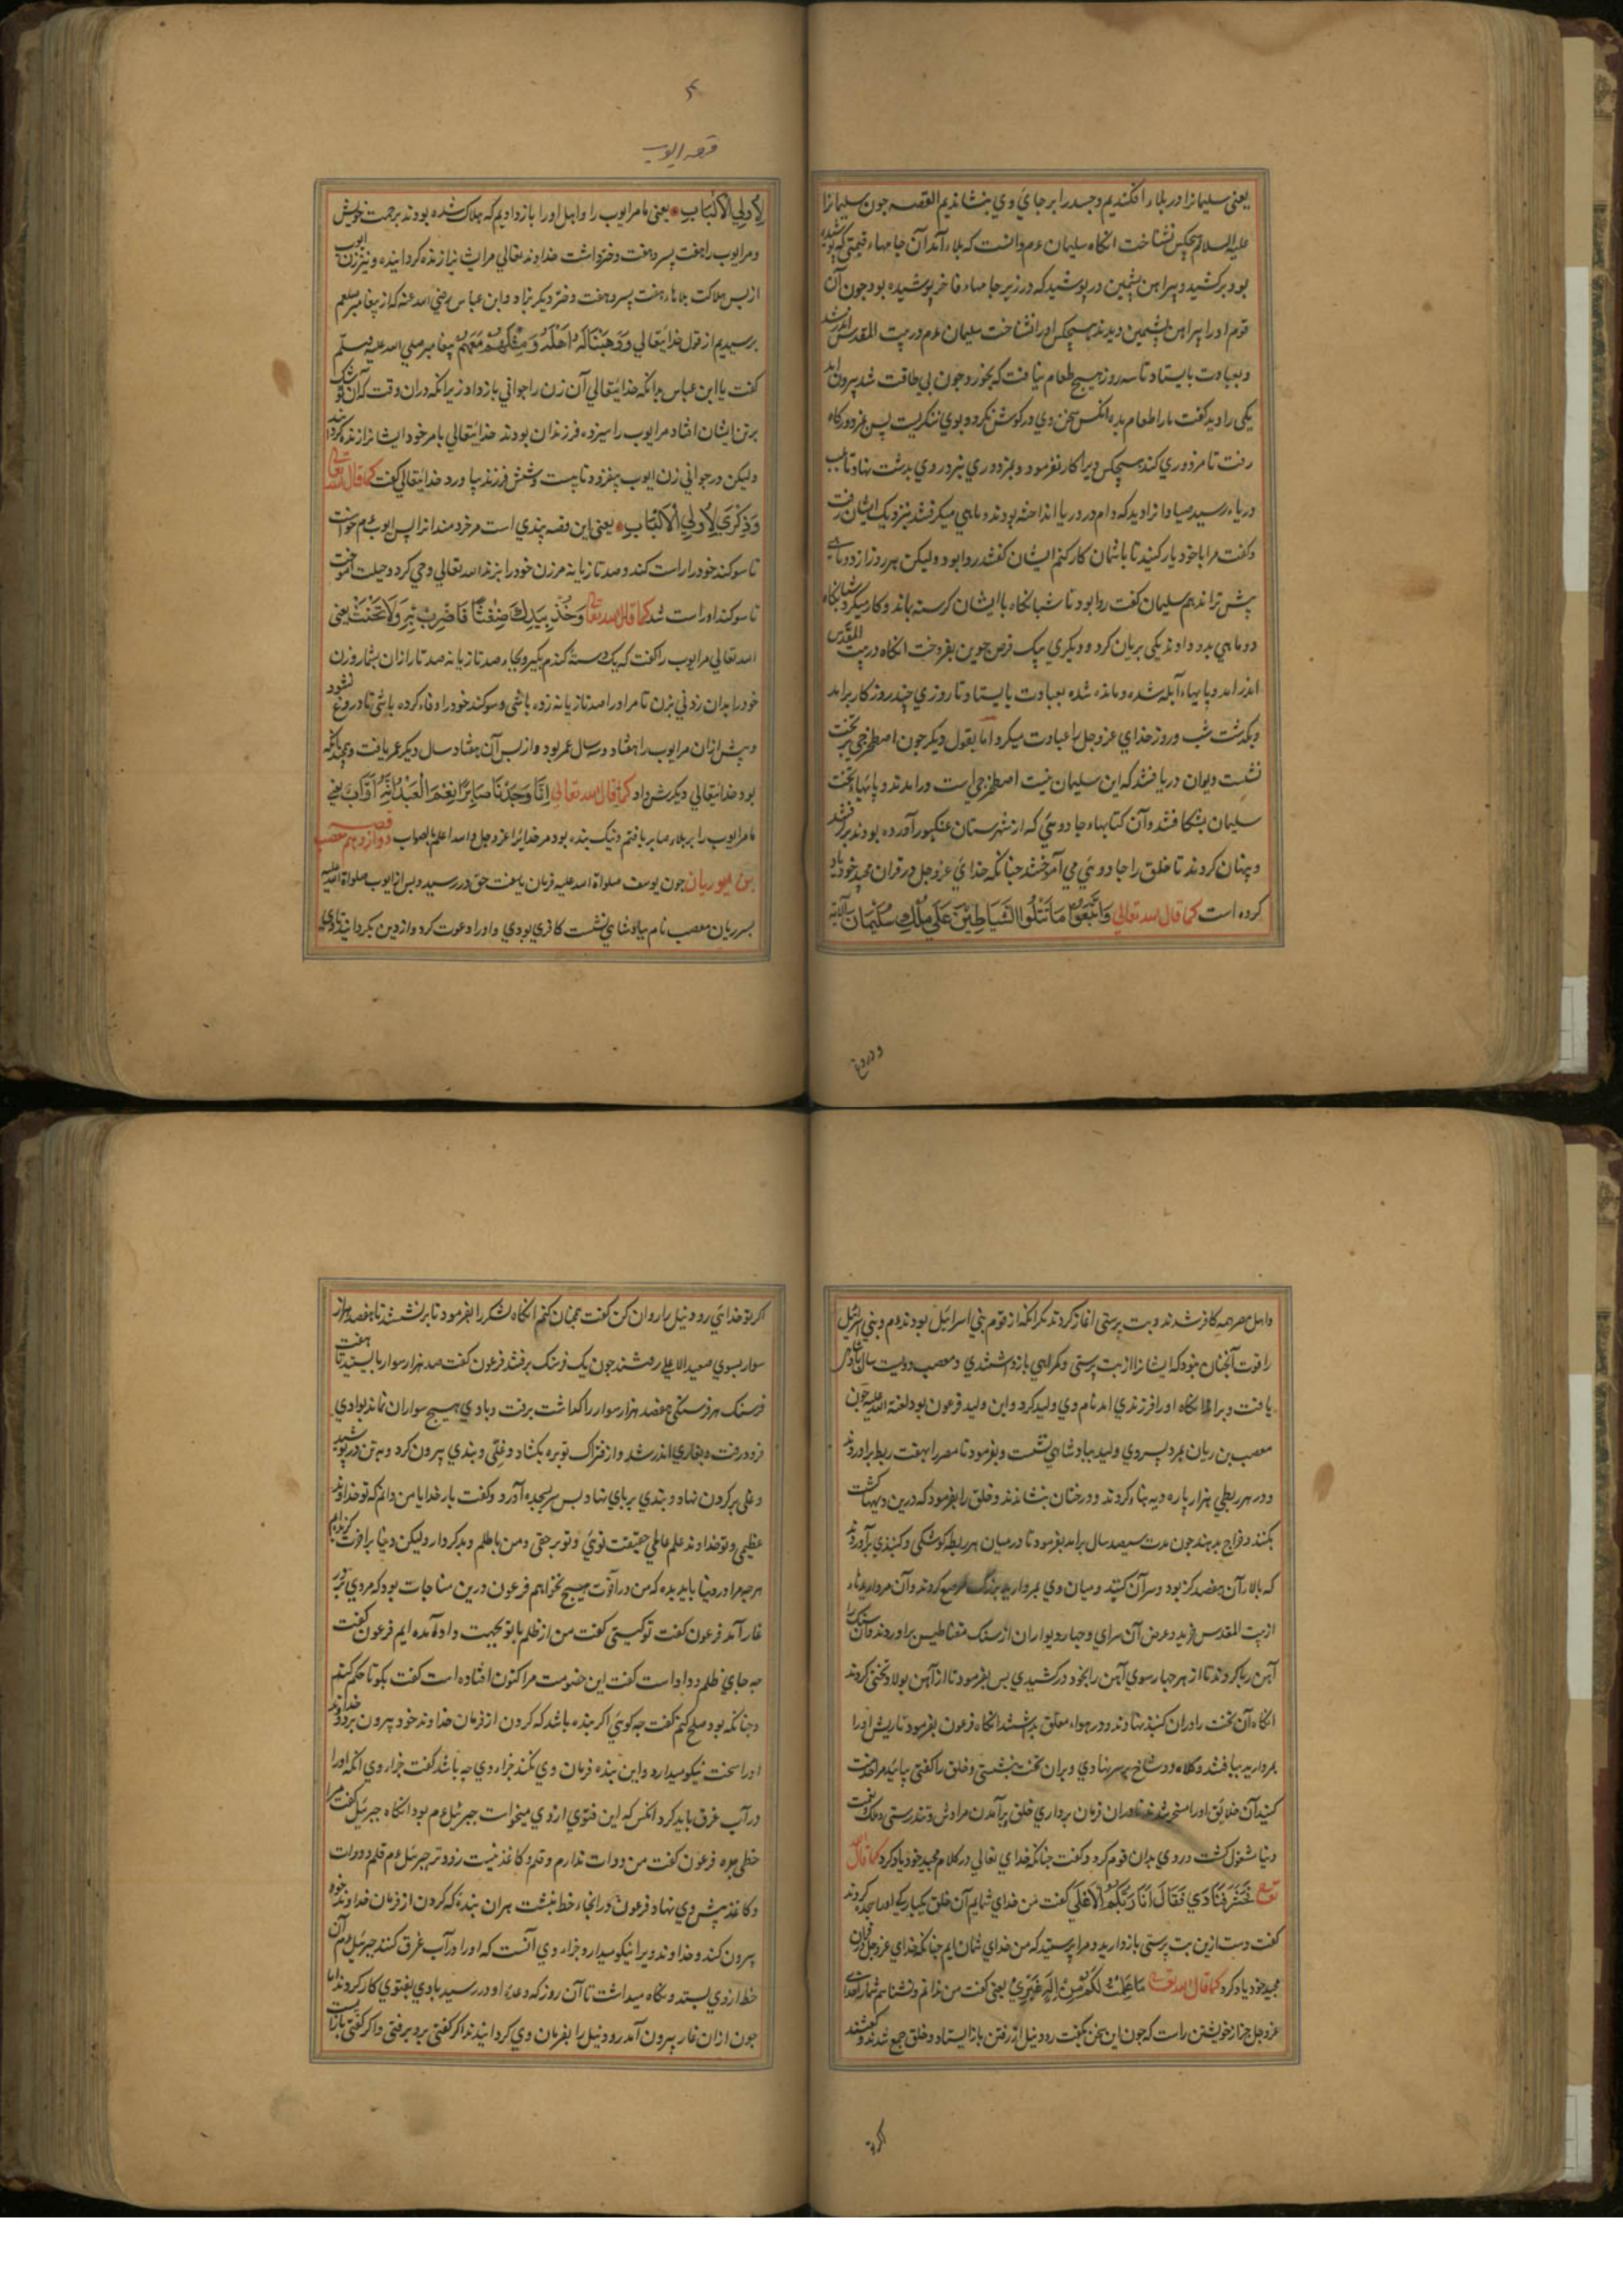 یعنی سلیمانرا در بلاء افکندیم و جسد را بر جای وی بنشاندیم القصه جون سلیمانرا
علیه السلام هیچکس نشناخت انکاه سلیمان عم دانست که بلاء آمد آن جامهاء قیمتی که پوشیده
بود برکشید و پیراهن پشمین در پوشید که در زیر جامهاء فاخر پوشیده بود جون آن
قوم او را پیراهن پشمین دیدند هیچکس او را نشناخت سلیمان عم در بیت المقدس اندر شد
و بعبادت بایستاد تا سه روز هیچ طعام نیافت که بخورد جون بی طاقت شد بیرون آمد
یکی را دید کفت مارا طعام بده انکس سخن وی در کوش نکرد و بوی ننکریست پس
رفت تا مزدوری کند هیچکس ویرا کار نفرمود و بمزدوری نبرد روی بدشت نهاد تا بلب
دریاء رسید صیادانرا دید که دام در دریا انداخته بودند و ماهی میکرفتند بنزدیک ایشان رفت
و کفت مرا با خود یار کنید تا باشمان کار کنم ایشان کفتند روا بود ولیکن هر روز از دو ماهی
بیش ترا ندهیم سلیمان کفت روا بود تا شبانکاه با ایشان کرسنه بماند و کار میکرد شبانکاه
دو ماهی بدو دادند یکی بریان کرد و دیکری بیک قرص جوین بفروخت انکاه در بیت المقدس
اندر امد و پایهاء آبله شده و مانده شده بعبادت بایستاد تا روزی چند روزکار برامد
و بکذشت شب و روز خدای عز و جل را عبادت میکرد اما بقول دیکر جون اصطخرجی بر تخت
نشست دیوان دریافتند که این سلیمان نیست اصطخرجی است در امدند و پایهاء تخت
سلیمان بشکافتند و آن کتابهاء جادوئی که از شهرستان عنکبور آورده بودند برکرفتند
و پنهان کردند تا خلق را جادوئی می آموختند جنانکه خدای عز و جل در قران مجید خود یاد
کرده است کما قال الله تعالی وَاتَّبَعُوا مَا تَتْلُوا الشَّیَاطِیْنَ عَلَی مُلْکِ سُلَیْمَانَ الآیه
و دروغ
۴
قصه ایوب
لِأُولِی الْأَلْبَابِ یعنی ما مر ایوب را و اهل او را باز دادیم که هلاک شده بودند برحمت خویش
و مر ایوب را هفت پسر و هفت دختر داشت خداوند تعالی مر ایشانرا زنده کردانیده و نیز زن ایوب
از پس هلاکت بلاهاء هفت پسر و هفت دختر دیکر بزاد و ابن عباس رضی الله عنه که از پیغامبر صلعم
پرسیدیم از قول خدایتعالی وَوَهَبْنَا لَهُ أَهْلَهُ وَمِثْلَهُمْ مَعَهُمْ پیغامبر صلی الله علیه وسلم
کفت یا ابن عباس بدانکه خدایتعالی آن زن را جوانی باز داد زیرا انکه در ان وقت که آن
بر تن ایشان افتاد مر ایوب را سیزده فرزندان بودند خدایتعالی بامر خود ایشانرا زنده کردانید
ولیکن در جوانی زن ایوب بیفزود تا بیست و شش فرزند بیاورد خدایتعالی کفت کما قال الله تعالی
وَذِکْرَی لِأُولِی الْأَلْبَابِ یعنی این قصه پندی است مر خردمندانرا پس ایوب عم خواست
تا سوکند خود را راست کند و صد تازیانه مر زن خود را بزند الله تعالی وحی کرد و حیلت آموخت
تا سوکند او راست شد کما قال الله تعالی وَخُذْ بِیَدِکَ ضِغْثًا فَاضْرِبْ بِهِ وَلَا تَحْنَثْ یعنی
الله تعالی مر ایوب را کفت که یک دستهٔ کندم بکیر و بجاء صد تازیانه صد تارا ازان بشمار و زن
خود را بدان زدنی بزن تا مر او را صد تازیانه زده باشی و سوکند خود را وفاء کرده باشی تا دروغ نشود
و پیش ازان مر ایوب را هفتاد و سه سال عمر بود و از پس آن هفتاد سال دیکر عمر یافت و همچنانکه
بود خدایتعالی دیکرش داد کما قال الله تعالی إِنَّا وَجَدْنَاهُ صَابِرًا نِعْمَ الْعَبْدُ إِنَّهُ أَوَّابٌ یعنی
ما مر ایوب را بر بلاء صابر یافتیم و نیک بنده بود مر خدایرا عز و جل والله اعلم بالصواب قصه دوازدهم مصعب
بن ریان جون یوسف صلواة الله علیه فرمان یافت حق در رسید و پس از ایوب صلواة الله علیه
پسر ریان مصعب نام بپادشاهی نشست کافری بودی و او را دعوت کرد و از دین بکردانید
و اهل مصر همه کافر شدند و بت پرستی اغاز کردند مکر انکه از قوم بنی اسرائیل بودند و بنی اسرائیل
را قوت آنجنان نبود که ایشانرا از بت پرستی و کمراهی باز داشتندی و مصعب دویست سال
یافت و بر انکاه او را فرزندی امد نام وی ولید کرد و این ولید فرعون بود لعنه الله علیه جون
مصعب بن ریان بمرد پسر وی ولید بپادشاهی نشست و بفرمود تا مصر را بهفت ربط براوردند
و در هر ربطی هزار پاره دیه بناء کردند و درختان بنشاندند و خلق را بفرمود که درین دیهها کشت
بکنند و خراج بدهند جون مدت سیصد سال برامد بفرمود تا در میان هر ربط کوشکی و کنبدی برآوردند
که بالاء آن هفصد کز بود و سر آن کنبد و میان وی بمروارید بزرک مرصع کردند و آن مروارید
از بیت المقدس و عرض آن سرای و چهار دیواران از سنک مقناطیس براوردند و آن سنک را
آهن ربا کردند تا از هر چهار سوی آهن را بخود درکشیدی پس بفرمود تا از آهن بولاد تختی کردند
انکاه آن تخت را دران کنبد نهادند و در هواء معلق بداشتند انکاه فرعون بفرمود تا ریش او را
بمروارید ببافتند و کلاه دو شاخ بر سر نهادی و بران تخت بنشستی و خلق را کفتی بیائید مرا خدمت
کنید آن خلائق او را مسخر شدند دران فرمان برداری خلق و برآمدن مرادش و تندرستی و ملک
دنیا مشغول کشت و روی بدان قوم کرد و کفت جنانکه خدای تعالی در کلام مجید خود یاد کرد کما قال الله
تعالی فَحَشَرَ فَنَادَی فَقَالَ أَنَا رَبُّکُمُ الْأَعْلَی کفت من خدای شمایم آن خلق یکبارکی او را سجده کردند
کفت دست ازین بت پرستی باز دارید و مرا پرستید که من خدای شمایم جنانکه خدای عز و جل در قران
مجید خود یاد کرد کما قال الله تعالی مَا عَلِمْتُ لَکُمْ مِنْ إِلَهٍ غَیْرِی یعنی کفت من ندانم و نشناسم شمارا خدای
عز و جل جز از خویشتن راست که جون این سخن بکفت رود نیل از رفتن باز ایستاد و خلق جمع شدند و کفتند
اکر تو
اکر تو خدایی رود نیل را روان کن کفت همچنان کنم انکاه لشکر را بفرمود تا برنشستند تا هفصد هزار
سوار بسوی صعید الاعلی رفتند جون یک فرسنک برفتند فرعون کفت صد هزار سوار بایستید تا هفت
فرسنک هر فرسنکی هفصد هزار سوار را کذاشت برفت و با وی هیچ سواران نماند بوادی
فرود رفت و بغاری اندر شد و از فتراک توبره بکشاد و غلی و بندی بیرون کرد و به تن در پوشید
و غلی بر کردن نهاد و بندی بر پای نهاد پس سر بسجده آورد و کفت بار خدایا من دانم که تو خداوند
عظیمی و تو خداوند علم عاملی حقیقت توئی و تو بر حقی و من باطلم و بدکردار ولیکن دنیا بر آخرت کزیدم
هرجه مرا در دنیا باید بده که من در آخرت هیچ نخواهم فرعون درین مناجات بود که مردی بر در
غار آمد فرعون کفت تو کیستی کفت من از ظلم بتو بحجت و داد آمده ایم فرعون کفت
جه جای ظلم و داد است کفت این خصومت مرا کنون افتاده است کفت بکو تا حکم کنیم
و جنانکه بود صلح کنم کفت جه کوئی اکر بنده باشد که کردن از فرمان خداوند خود بیرون برد و خداوند
او را سخت نیکو میدارد و این بنده فرمان وی نکند جزاء وی جه باشد کفت جزاء وی انکه او را
در آب غرق باید کرد انکس که این فتوی از وی میخواست جبرئیل عم بود انکاه جبرئیل کفت مرا
خطی بده فرعون کفت من دوات ندارم و قلم و کاغذ نیست زود تر جبرئیل عم قلم و دوات
و کاغذ پیش وی نهاد فرعون در انجاء خط بنبشت هران بندهٔ که کردن از فرمان خداوند خود
بیرون کند و خداوند ویرا نیکو میدارد جزاء وی آنست که او را در آب غرق کنند جبرئیل عم آن
خط از وی بستد و نکاه میداشت تا آن روز که وعدهٔ او در رسید با وی بفتوی کار کردند اما
جون ازان غار بیرون آمد رود نیل را بفرمان وی کردانیدند اکر کفتی برو برفتی و اکر کفتی باز ایست